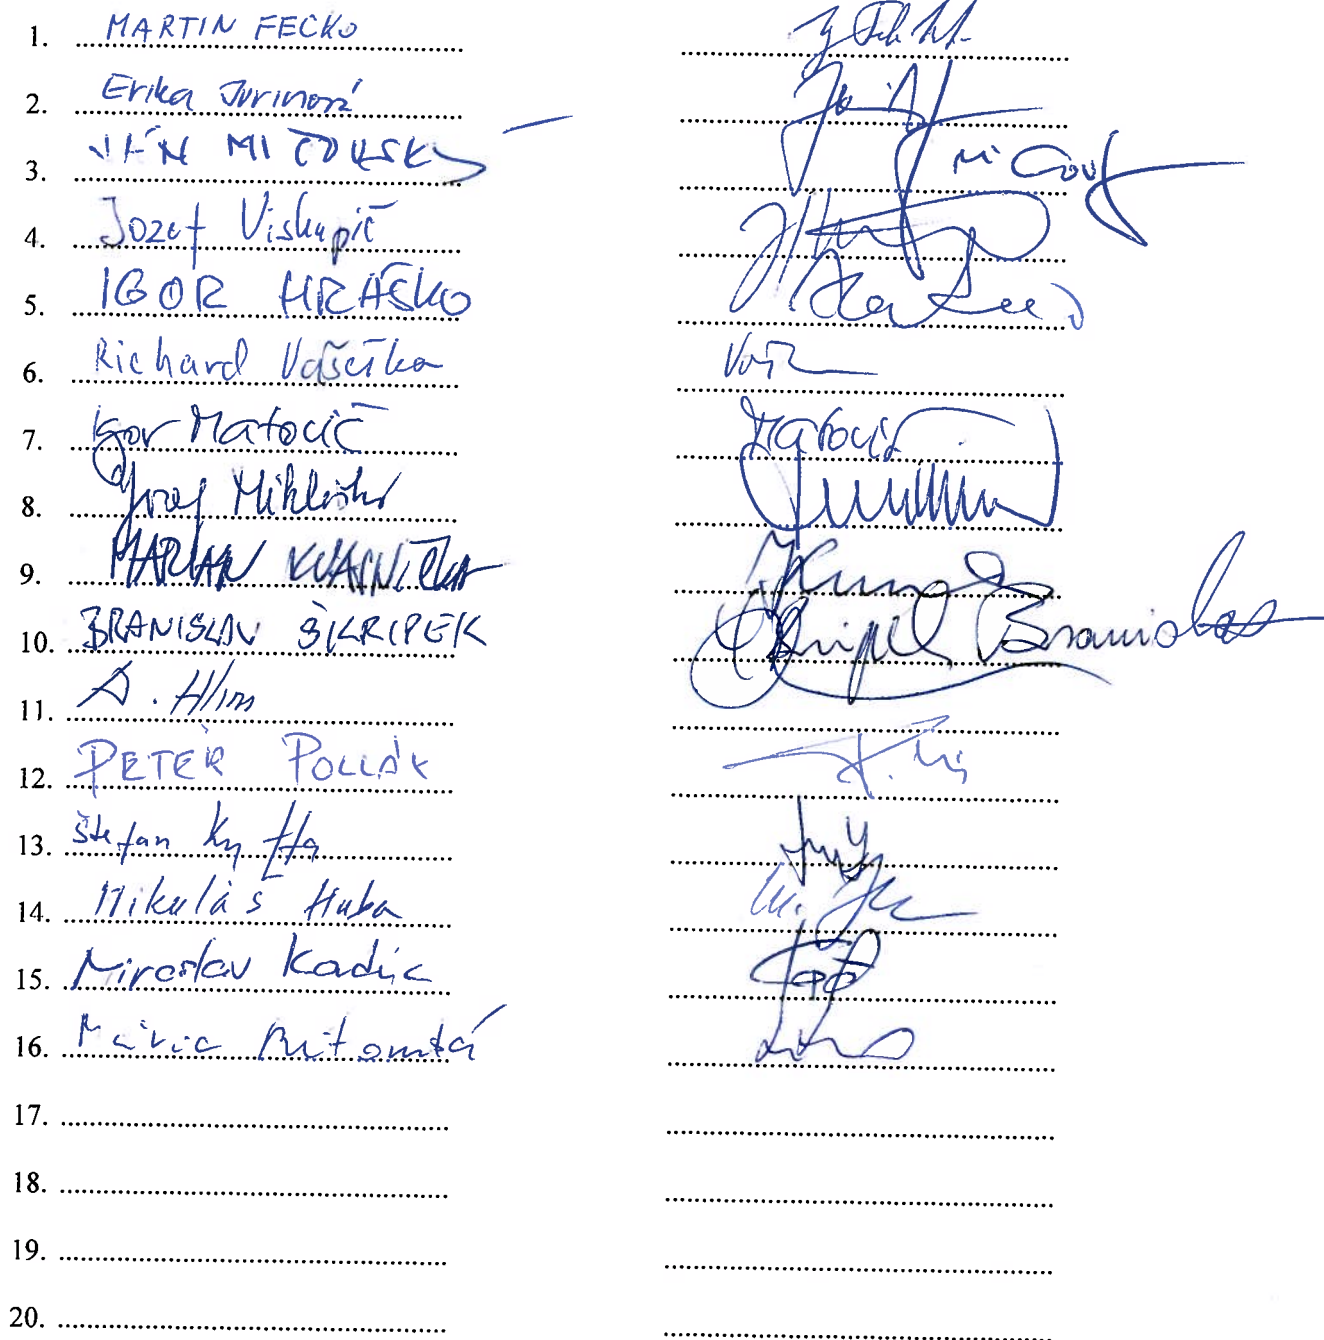 1. MARTIN FEČKO
2. Erika Jurinová
3. JÁN MIČOVSKÝ
4. Jozef Viskupič
5. IGOR HRAŠKO
6. Richard Vašečka Vaš
7. Igor Matovič Matovič
8. Jozef Mikloško
9. MARIAN KVASNIČKA
10. BRANISLAV ŠKRIPEK Škripek Branislav
11. A. Hlina
12. PETER POLLÁK
13. Štefan Kuffa
14. Mikuláš Huba
15. Miroslav Kadúc
16. Mária Ritomská
17.
18.
19.
20.